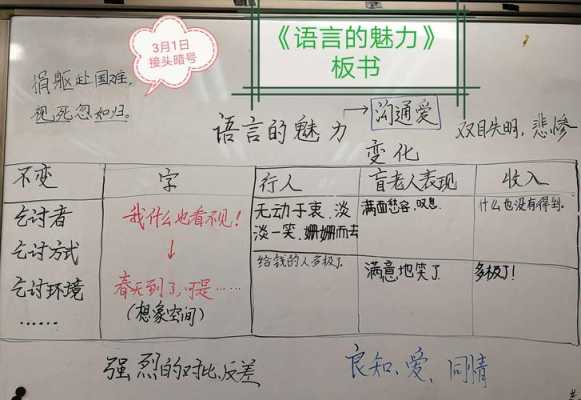 3月1日
接头暗号
《语言的魅力》
板书
捐躯赴国难,
视死忽如归。
语言的魅力
沟通爱
双目失明,悲惨
变化
不变
字
行人
盲老人表现
收入
乞讨者
乞讨方式
乞讨环境
……
我什么也看不见!
↓
春天到了,可是……
(想象空间)
无动于衷、淡
淡一笑、姗姗而去
满面愁容、叹息
什么也没有得到。
给钱的人多极了
满意地笑了
多极了!
强烈的对比、反差
良知、爱、同情